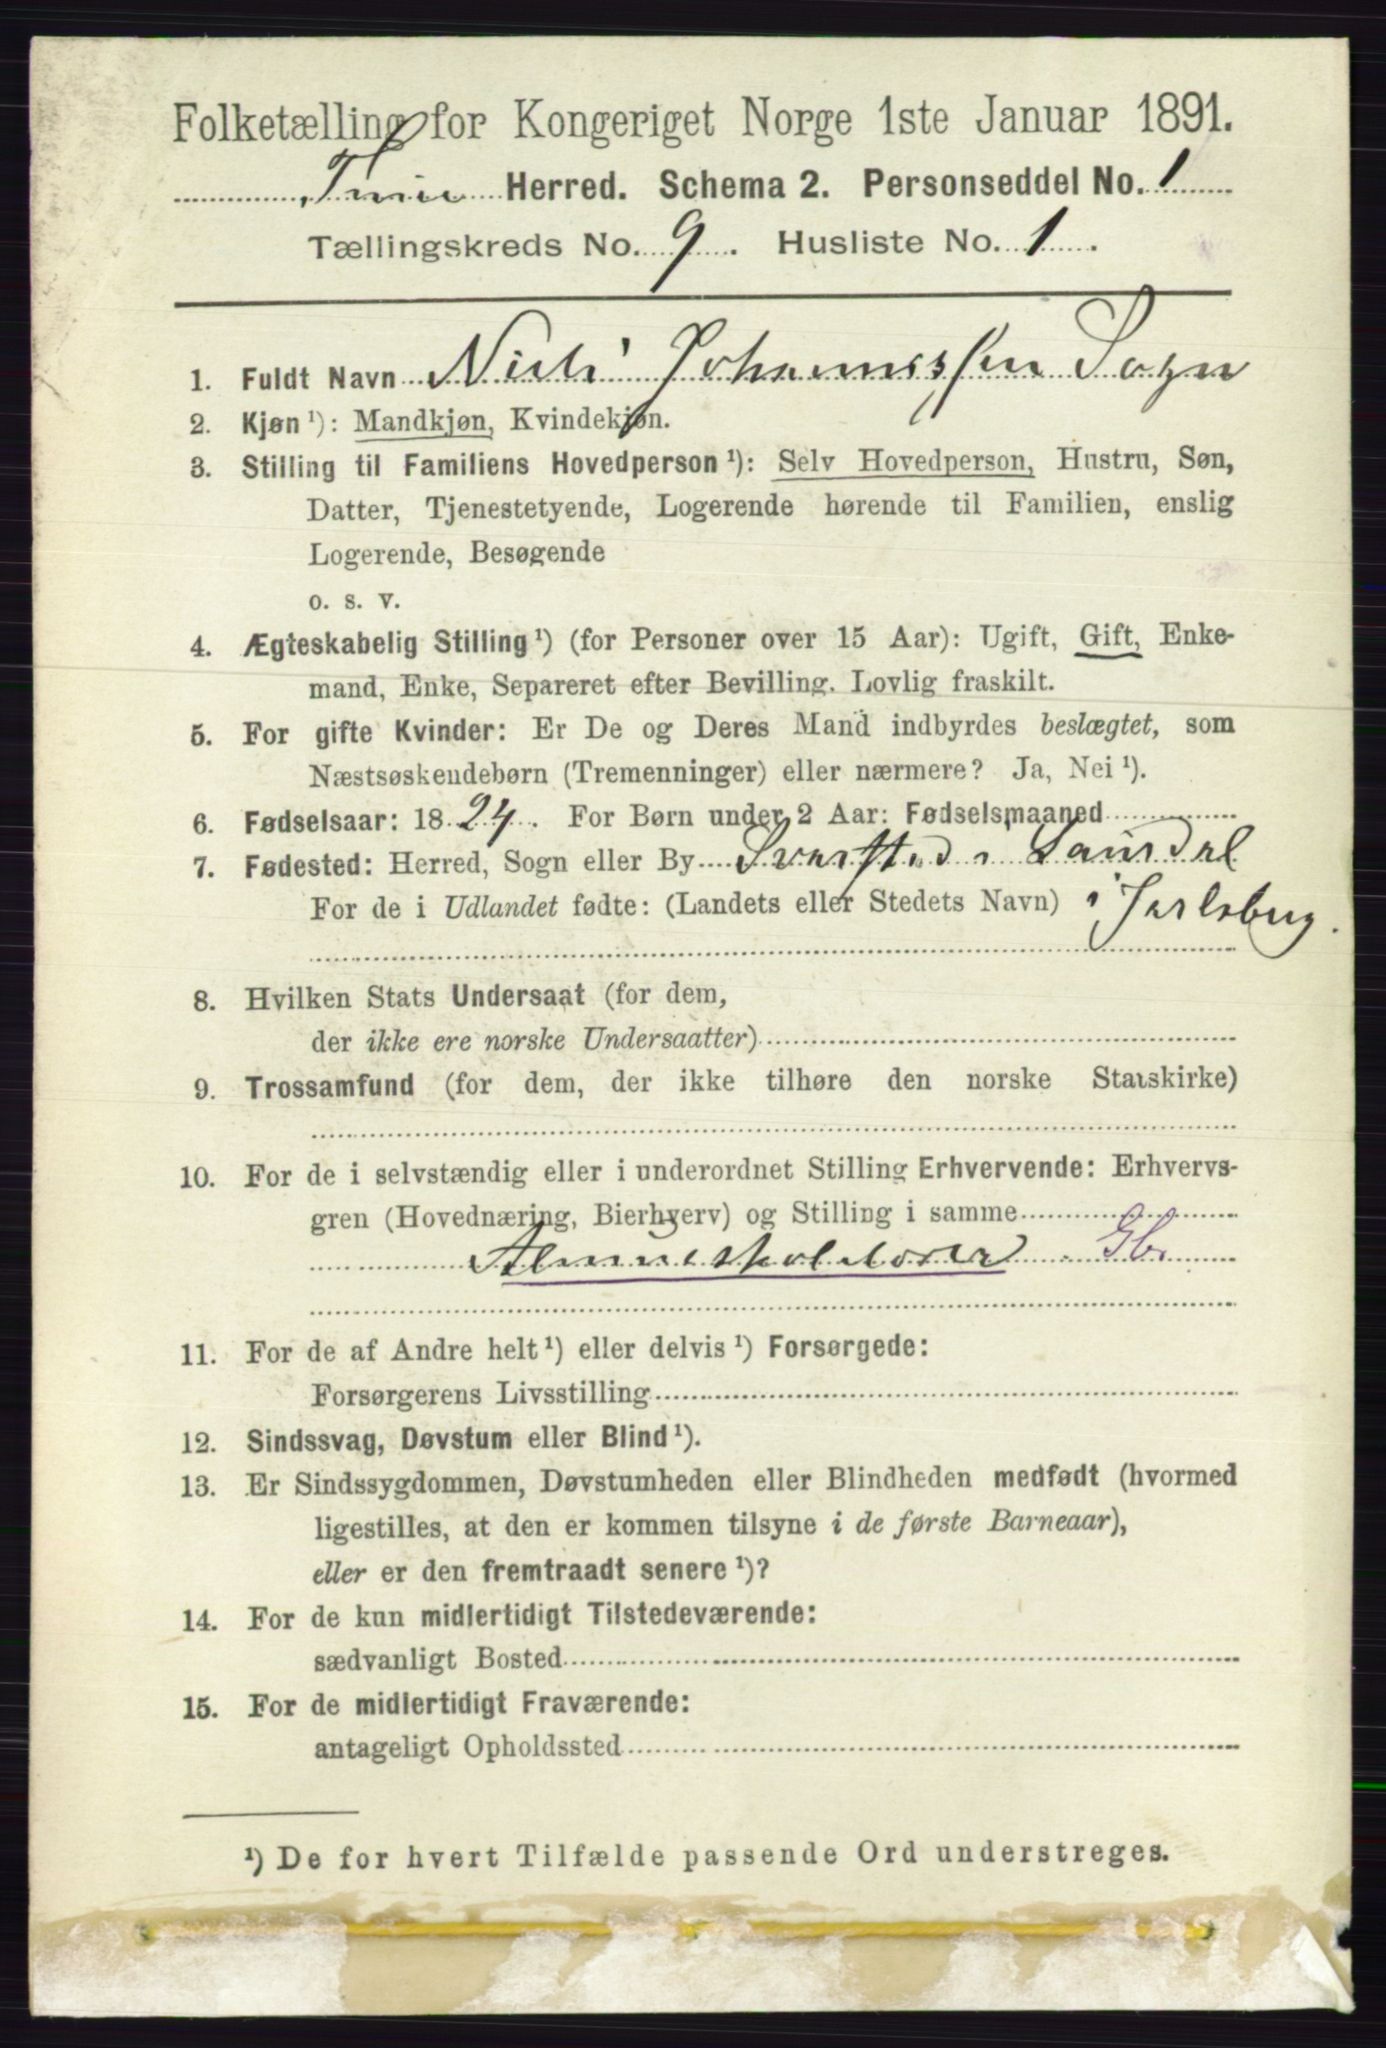 Folketælling for Kongeriget Norge 1ste Januar 1891.
Herred. Schema 2. Personseddel No. 1
Tællingskreds No. 9. Husliste No. 1.
1. Fuldt Navn Niels Johannessen Sogn
2. Kjøn¹): Mandkjøn, Kvindekjøn.
3. Stilling til Familiens Hovedperson¹): Selv Hovedperson, Hustru, Søn,
Datter, Tjenestetyende, Logerende hørende til Familien, enslig
Logerende, Besøgende
o. s. v.
4. Ægteskabelig Stilling¹) (for Personer over 15 Aar): Ugift, Gift, Enke-
mand, Enke, Separeret efter Bevilling. Lovlig fraskilt.
5. For gifte Kvinder: Er De og Deres Mand indbyrdes beslægtet, som
Næstsøskendebørn (Tremenninger) eller nærmere? Ja, Nei¹).
6. Fødselsaar: 1824. For Børn under 2 Aar: Fødselsmaaned
7. Fødested: Herred, Sogn eller By Svarstad i Laurdal
For de i Udlandet fødte: (Landets eller Stedets Navn) i Jarlsberg.
8. Hvilken Stats Undersaat (for dem,
der ikke ere norske Undersaatter)
9. Trossamfund (for dem, der ikke tilhøre den norske Statskirke)
10. For de i selvstændig eller i underordnet Stilling Erhvervende: Erhvervs-
gren (Hovednæring, Bierhverv) og Stilling i samme
Almueskolelærer Gbr
11. For de af Andre helt¹) eller delvis¹) Forsørgede:
Forsørgerens Livsstilling
12. Sindssvag, Døvstum eller Blind¹).
13. Er Sindssygdommen, Døvstumheden eller Blindheden medfødt (hvormed
ligestilles, at den er kommen tilsyne i de første Barneaar),
eller er den fremtraadt senere¹)?
14. For de kun midlertidigt Tilstedeværende:
sædvanligt Bosted
15. For de midlertidigt Fraværende:
antageligt Opholdssted
¹) De for hvert Tilfælde passende Ord understreges.